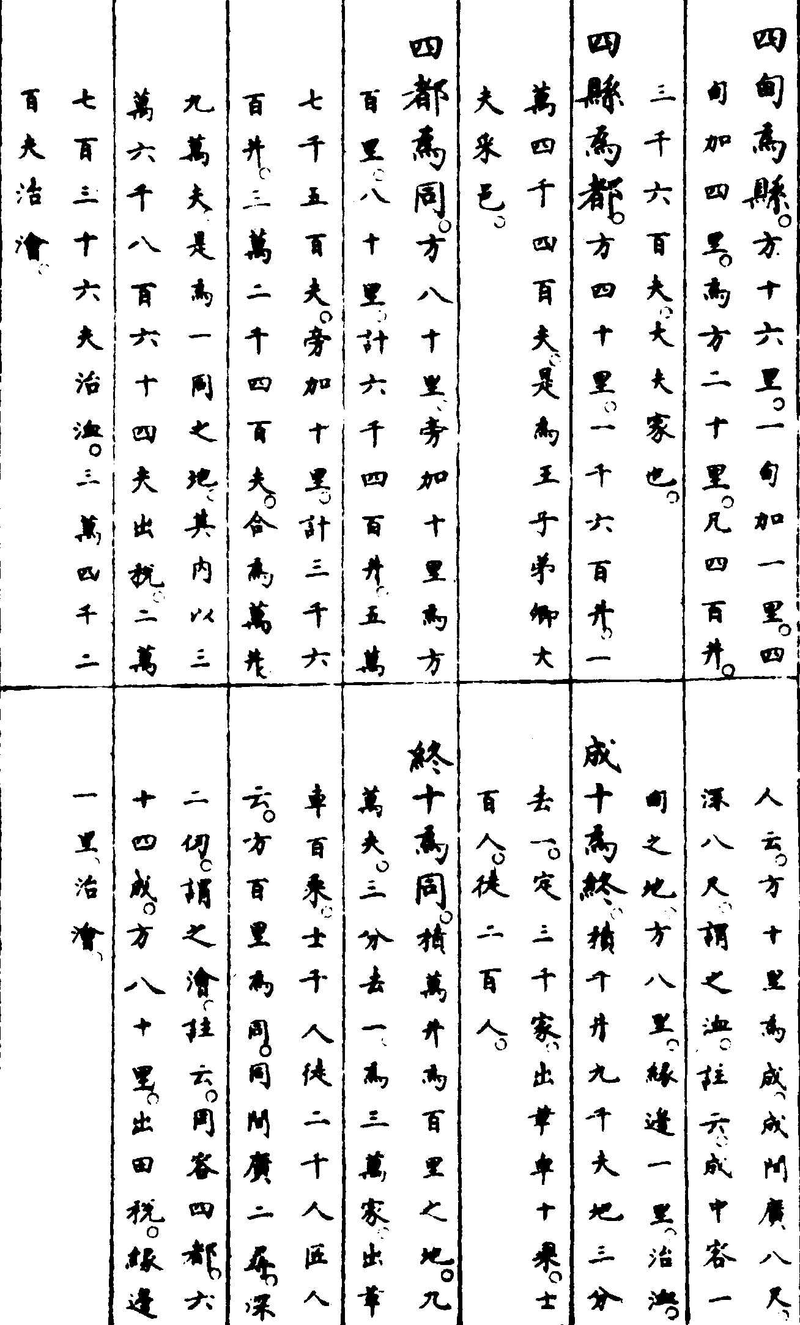 四甸爲縣。方十六里。一甸加一里。四
甸加四里。爲方二十里。凡四百井。
三千六百夫。大夫家也。
四縣爲都。方四十里。一千六百井。一
萬四千四百夫。是爲王子弟卿大
夫采邑。
四都爲同。方八十里。旁加十里爲方
百里。八十里。計六千四百井。五萬
七千五百夫。旁加十里。計三千六
百井。三萬二千四百夫。合爲萬井
九萬夫。是爲一同之地。其内以三
萬六千八百六十四夫出稅。二萬
七百三十六夫治洫。三萬四千二
百夫治澮。
人云。方十里爲成。成間廣八尺。
深八尺。謂之洫。註云。成中容一
甸之地。方八里。緣邊一里。治洫。
成十爲終。積千井九千夫地三分
去一。定三千家。出革車十乘。士
百人。徒二百人。
終十爲同。積萬井爲百里之地。九
萬夫。三分去一、爲三萬家。出革
車百乘。士千人徒二千人匠人
云。方百里爲同。同間廣二尋。深
二仞。謂之澮。註云。同容四都。六
十四成。方八十里。出田稅。緣邊
一里、治澮、